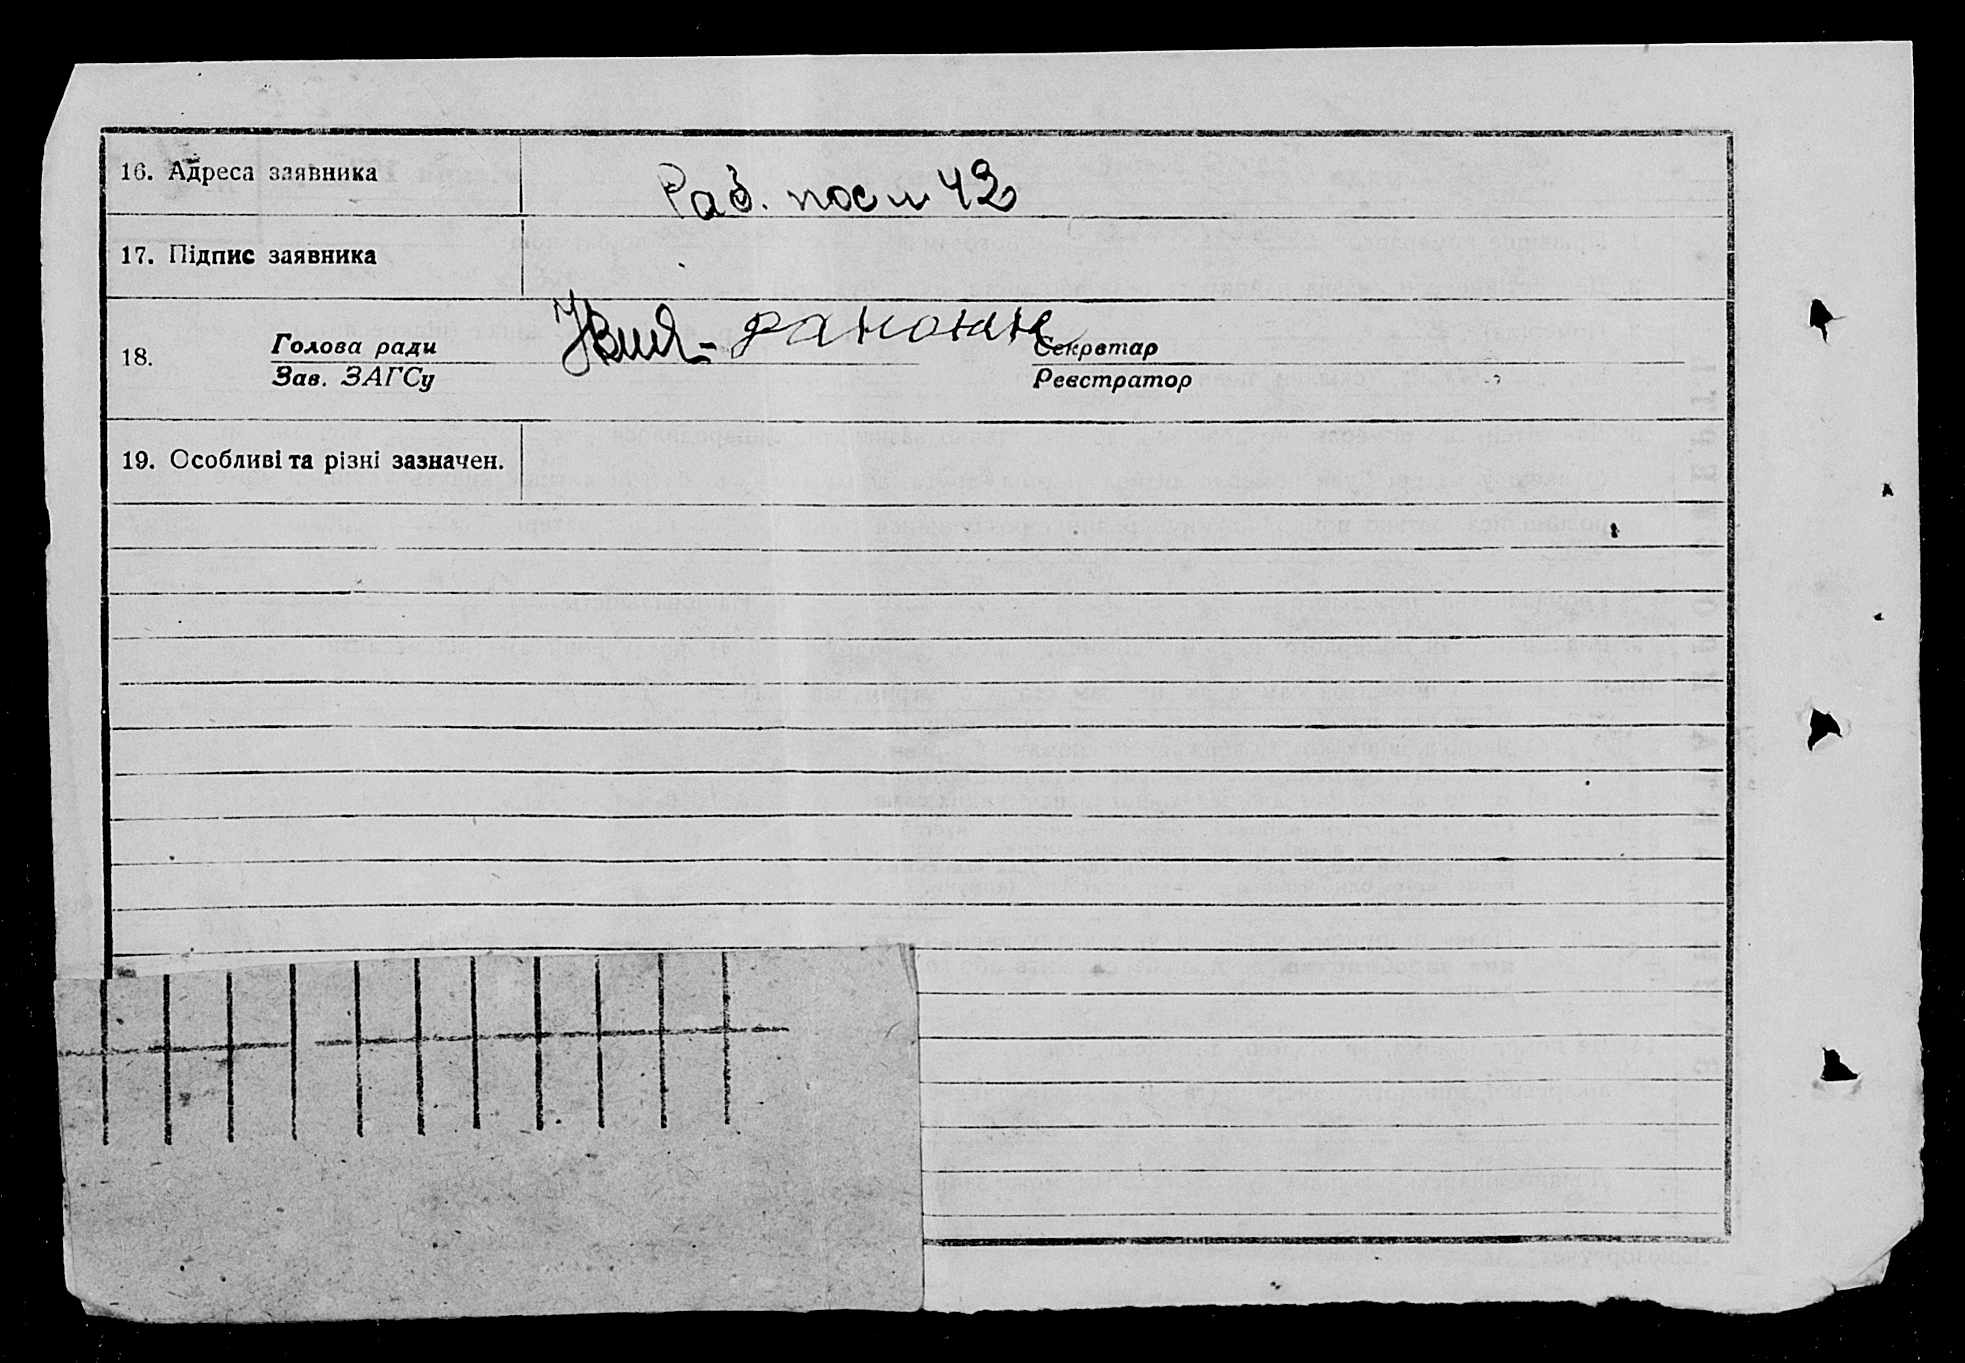 16. Адреса заявника Раб. пос м 42
17. Підпис заявника
18. Голова ради Секретар
Зав. ЗАГСу Реєстратор
19. Особливі та різні зазначен.